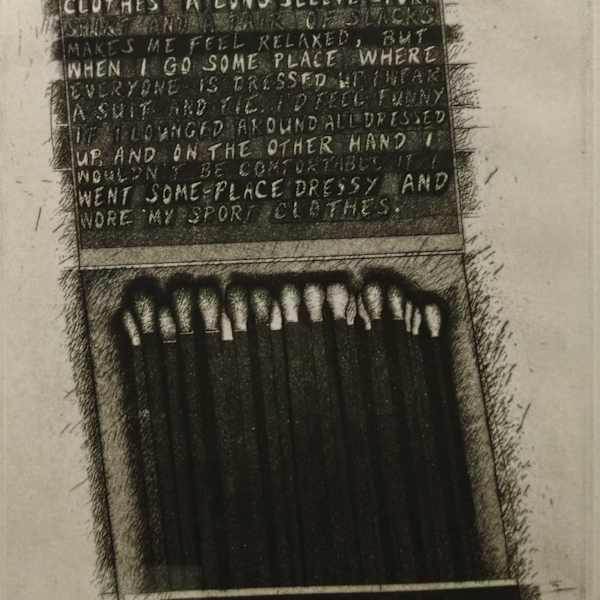 CLOTHES A LONG SLEEVE SPORT
SHIRT AND A PAIR OF SLACKS
MAKES ME FEEL RELAXED, BUT
WHEN I GO SOME PLACE WHERE
EVERYONE IS DRESSED UP I WEAR
A SUIT AND TIE. I'D FEEL FUNNY
IF I LOUNGED AROUND ALL DRESSED
UP, AND ON THE OTHER HAND I
WOULDN'T BE COMFORTABLE IF I
WENT SOME-PLACE DRESSY AND
WORE MY SPORT CLOTHES.